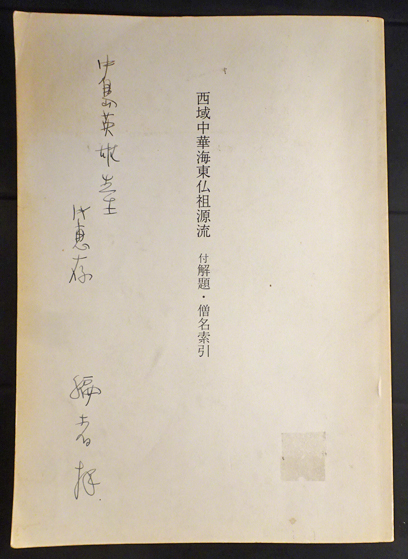 西域中華海東仏祖源流 付解題・僧名索引
中島英雄先生
惠存
編者拝